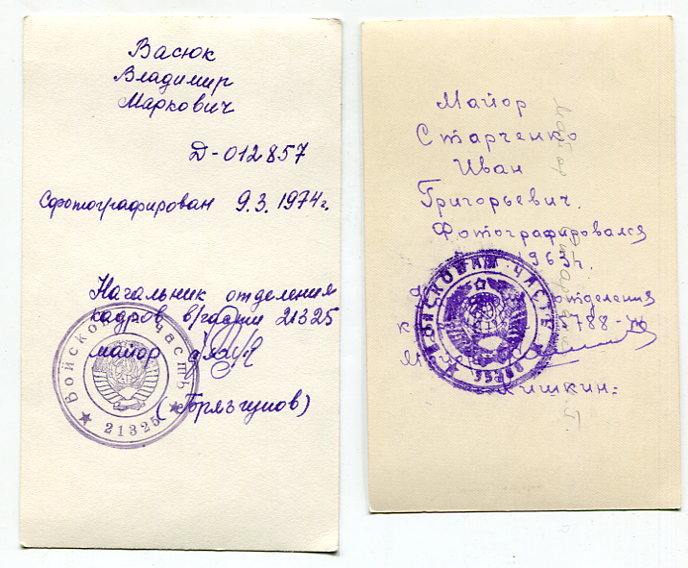 Васюк
Владимир
Маркович
Д-012857
Сфотографирован 9.3.1974г.
Начальник отделения
кадров в/части 21325
майор
Войсковая часть
21325
Майор
Старченко
Иван
Григорьевич.
Фотографировался
1963г.
отделения
к 788-
Войсковая часть